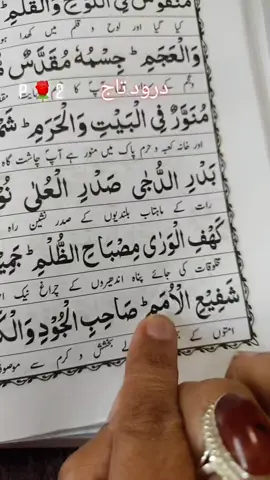 منقوش في اللوح والقلم
کیا گیا اور لوح و قلم میں کھدا ہو
درود تاج
وَالْعَجَمِ جِسْمُهٗ مُقَدَّسٌ
مُنَوَّرٌ فِي الْبَيْتِ وَالْحَرَمِ
اور خانہ کعبہ و حرم پاک میں منور ہے آپؐ چاشت گاہ
بَدْرِ الدُّجٰى صَدْرِ الْعُلٰى
رات کے ماہتاب بلندیوں کے صدر نشین راہ
كَهْفِ الْوَرٰى مِصْبَاحِ الظُّلَمِ
مخلوقات کی جائے پناہ اندھیروں کے چراغ نیک
شَفِيْعِ الْاُمَمِ صَاحِبِ الْجُوْدِ
امتوں کے بخشش و کرم سے موصوف